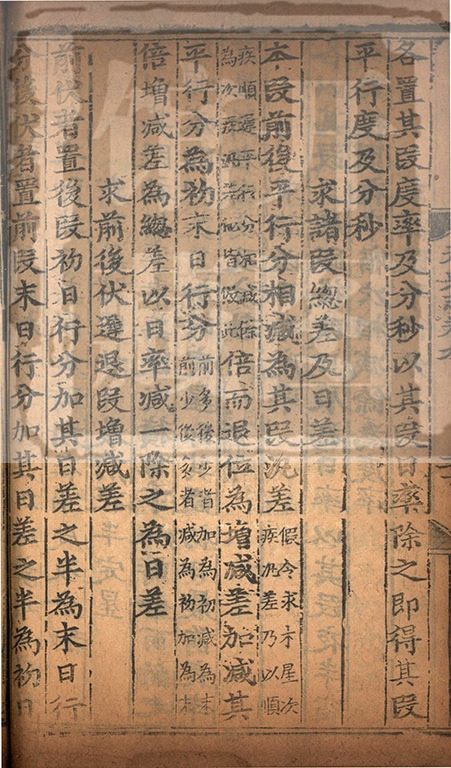 各置其段度率及分秒以其段日率除之即得其段
平行度及分秒
求諸段總差及日差
本段前後平行分相減為其段汎差假令求木星次疾汎差乃以順
疾順遲平行分相減餘為次疾汎差他皆倣此倍而退位為增減差加減其
平行分為初末日行分前多後少者加為初減為末前少後多者減為初加為末
倍增減差為總差以日率減一除之為日差
求前後伏遲退段增減差
前伏者置後段初日行分加其日差之半為末日行
分後伏者置前段末日行分加其日差之半為初日